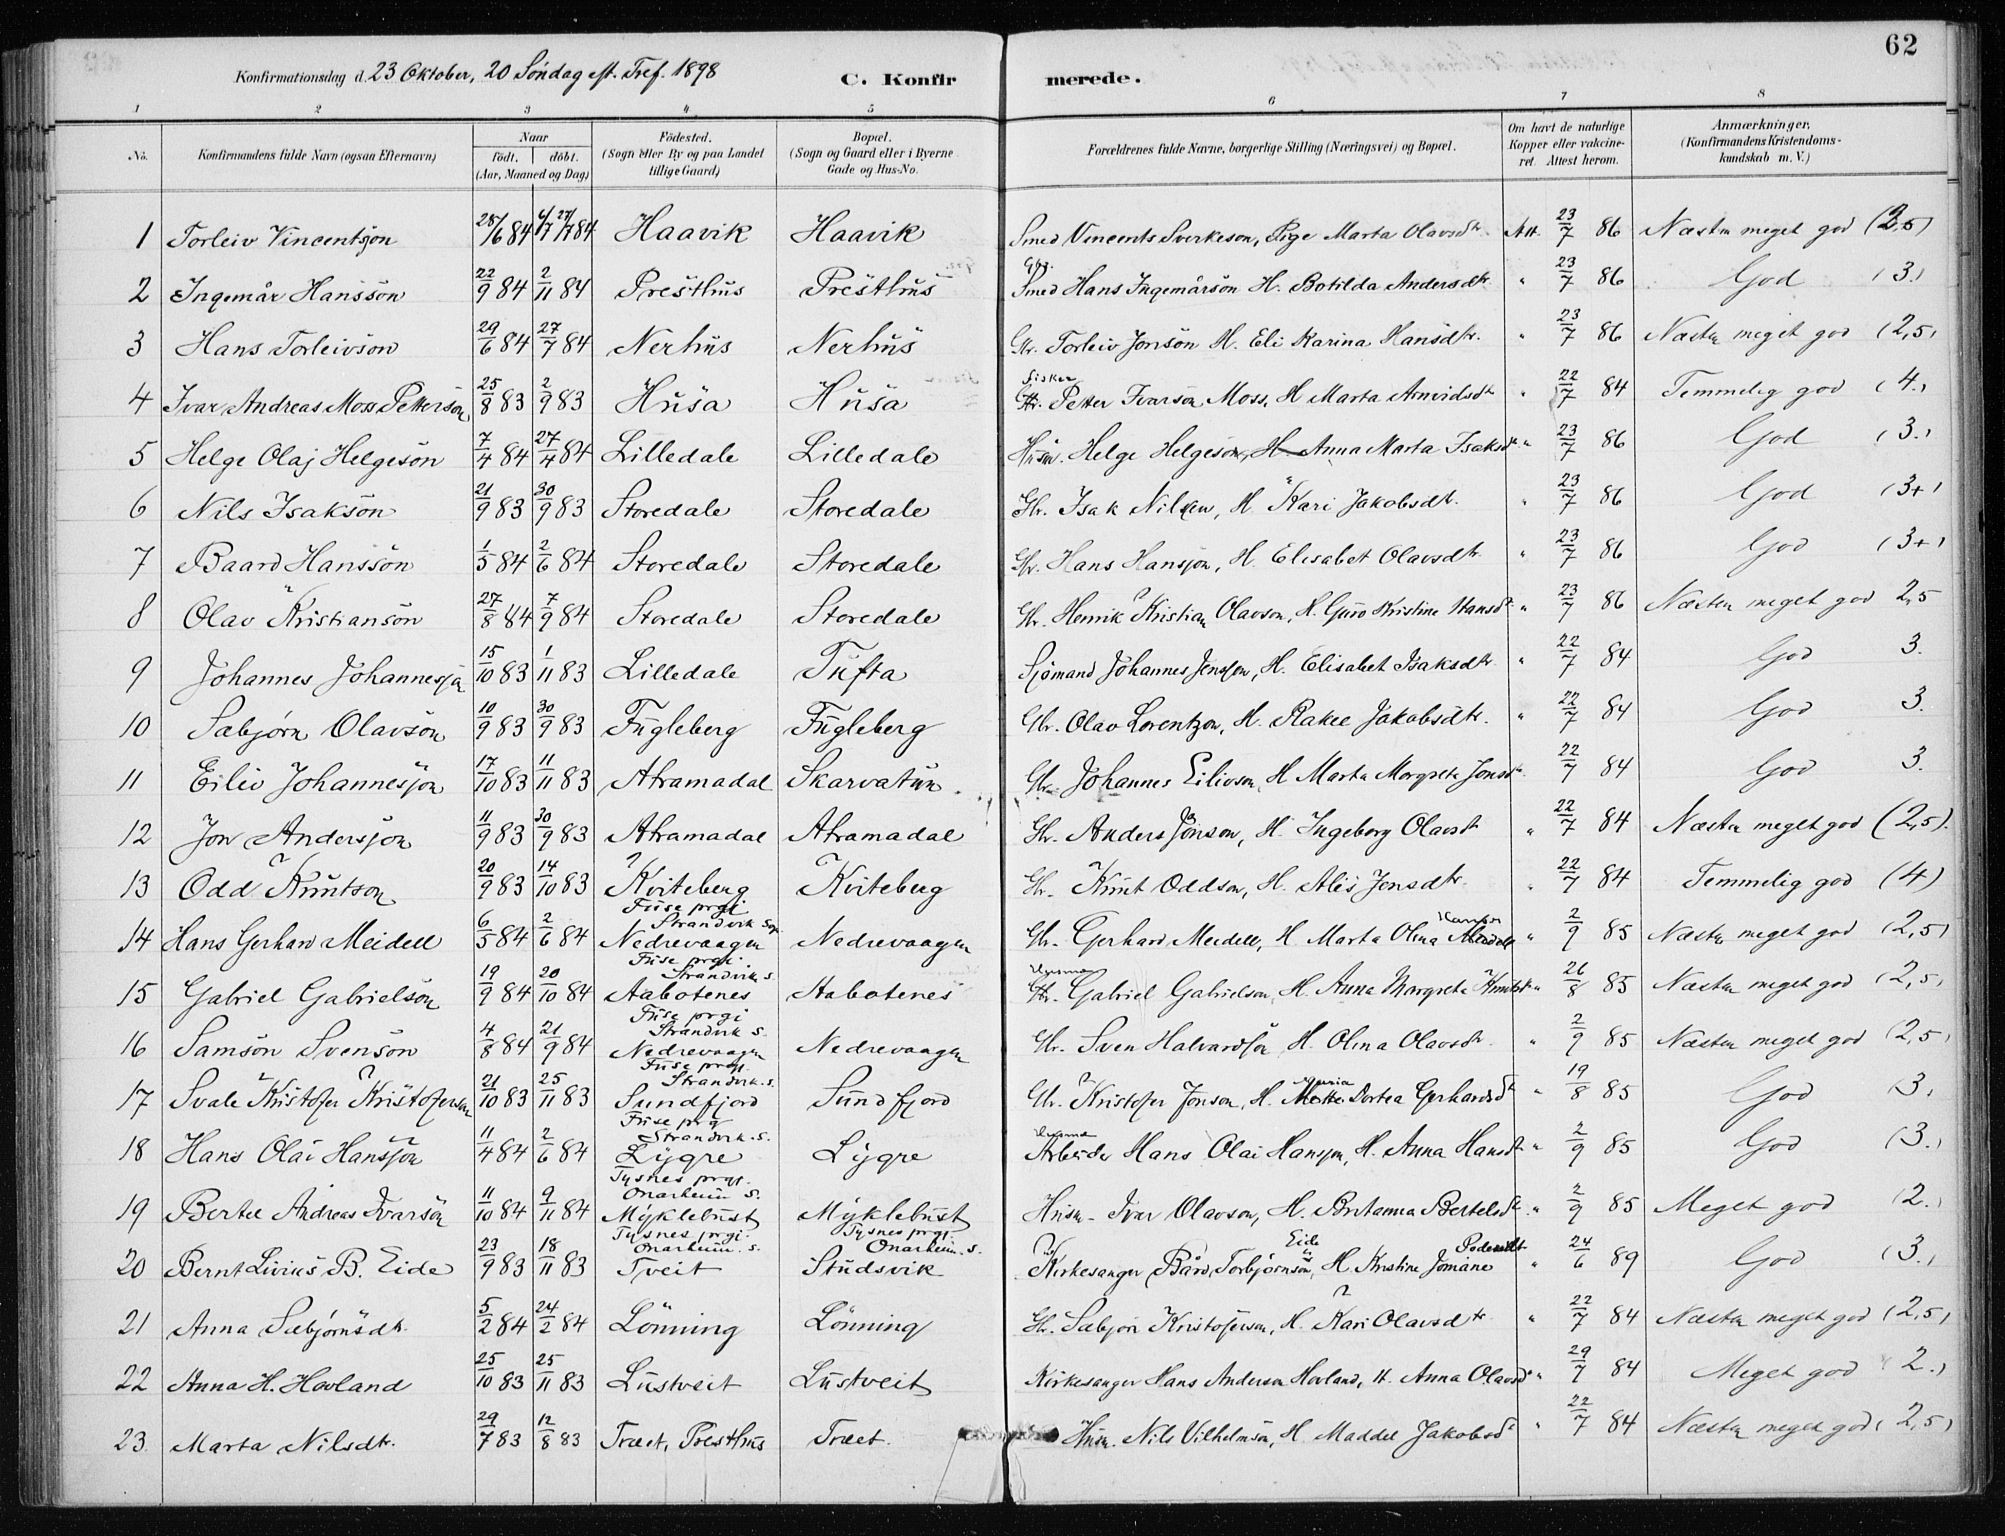 62
Konfirmationsdag d. 23 Oktober, 20 Söndag eft. Tref. 1898 C. Konfirmerede.
1 2 3 4 5 6 7 8
No. Konfirmandens fulde Navn (ogsaa Efternavn) Naar födt. döbt. (Aar, Maaned og Dag) Födested. (Sogn eller By og paa Landet tillige Gaard) Bopæl. (Sogn og Gaard eller i Byerne Gade og Hus-No. Forældrenes fulde Navne, borgerlige Stilling (Næringsvei) og Bopæl. Om havt de naturlige Kopper eller vakcineret. Attest herom. Anmærkninger. (Konfirmandens Kristendomskundskab m. V.)
1 Torleiv Vincentsson 28/6 84 27/7 84 Haavik Haavik Smed Vincents Sverkeson, Pige Marta Olavsdtr. Att. 23/7 86 Næsten meget god (2,5)
2 Ingemår Hansson 22/9 84 2/11 84 Presthus Presthus Gbr. Smed Hans Ingemårson H. Botilda Andersdtr " 23/7 86 God (3)
3 Hans Torleivson 29/6 84 27/7 84 Nerhus Nerhus Gbr. Torleiv Jonsön H. Eli Karina Hansdtr. " 23/7 86 Næsten meget god (2,5)
4 Ivar Andreas Moss Petterson 25/8 83 2/9 83 Husa Husa Fisker Petter Ivarson Moss, H. Marta Arnvidsdtr " 22/7 84 Temmelig god (4.)
5 Helge Olaj Helgesön 7/4 84 27/4 84 Lilledale Lilledale Husm. Helge Helgeson, H. Anna Marta Isaksdtr " 23/7 86 God (3.)
6 Nils Isaksön 21/9 83 30/9 83 Storedale Storedale Gbr. Isak Nilsen, H. Kari Jakobsdt. " 23/7 86 God (3+)
7 Baard Hansson 1/5 84 2/6 84 Storedale Storedale Gbr. Hans Hansson, H. Elisabet Olavsdtr. " 23/7 86 God (3+)
8 Olav Kristiansön 27/8 84 7/9 84 Storedale Storedale Gbr. Henrik Kristian Olavson, H. Guro Kristine Hansdtr " 23/7 86 Næsten meget god 2,5
9 Johannes Johannesson 15/10 83 1/11 83 Lilledale Tufta Sjömand Johannes Jensson, H. Elisabet Isaksdtr. " 22/7 84 God 3.
10 Sæbjørn Olavsön 10/9 83 30/9 83 Fugleberg Fugleberg Gbr. Olav Lorentzon, H. Rakel Jakobsdtr. " 22/7 84 God 3.
11 Eiliv Johannesson 17/10 83 11/11 83 Atramadal Skarvatun Gbr. Johannes Eilivson, H. Marta Margrete Jonsdtr. " 22/7 84 God 3.
12 Jon Andersson 11/9 83 30/9 83 Atramadal Atramadal Gbr. Anders Jonson, H. Ingeborg Olavsdt " 22/7 84 Næsten meget god (2,5).
13 Odd Knutson 20/9 83 14/10 83 Kviteberg Kviteberg Gbr. Knut Oddson, H. Alis Jonsdtr. " 22/7 84 Temmelig god (4)
14 Hans Gerhard Meidell 6/5 84 2/6 84 Fuse prgj Strandvik Sogn Nedrevaagen Nedrevaagen Gbr. Gerhard Meidell, H. Marta Olina " 2/9 85 Næsten meget god (2,5)
15 Gabriel Gabrielsön 19/9 84 20/10 84 Fuse prgj. Strandvik s. Aabotenes Aabotenes Gabriel Gabrielson, H. Anna Margreta Knutsdt " 26/8 85 Næsten meget god (2,5)
16 Samsön Svensön 4/8 84 21/9 84 Fuse prgj Strandvik s. Nedrevaagen Nedrevaagen Gbr. Sven Halvardson, H. Olina Olavsdtr. " 2/9 85 Næsten meget god (2,5)
17 Svale Kristofer Kristoferson 21/10 83 25/11 83 Fuse prgj. Strandvik. s. Sundfjord Sundfjord Gbr. Kristofer Jonson, H. Maria Dortea Gerhardsdt " 19/8 85 God (3.
18 Hans Olai Hansson 11/4 84 2/6 84 Fuse prg Strandvik. s. Lygre Lygre Husmd Arbeider Hans Olai Hansson, H. Anna Hansdt " 2/9 85 God (3.)
19 Bertel Andreas Ivarsön 11/10 84 9/11 84 Tysnes prgj. Onarheim s. Myklebust Myklebust Husm. Ivar Olavson, H. Britanna Bertelsdt. " 2/9 85 Meget god (2.)
20 Bernt Livius B. Eide 23/9 83 18/11 83 Tysnes prgj. Onarheim. s. Tveit Tysnes prgj. Onarheim. s. Studsvik Kirkesanger Bård Torbjørnson Eide, H. Kristine Jomine " 24/6 89 God (3.)
21 Anna Sæbjörnsdt. 5/2 84 24/2 84 Lönning Lönning Gbr. Sæbjörn Kristoferson, H. Kari Olavsdtr " 22/7 84 Næsten meget god (2,5)
22 Anna H. Hovland 25/10 83 25/11 83 Lustveit Lustveit Kirkesanger Hans Anderson Hovland, H. Anna Olavsdt " 29/7 84 Meget god (2.)
23. Marta Nilsdtr. 29/7 83 12/8 83 Træet, Presthus Træet. Husm. Nils Vilhelmsön, H. Maddel Jakobsdt " 22/7 84 Næsten meget god (2,5)